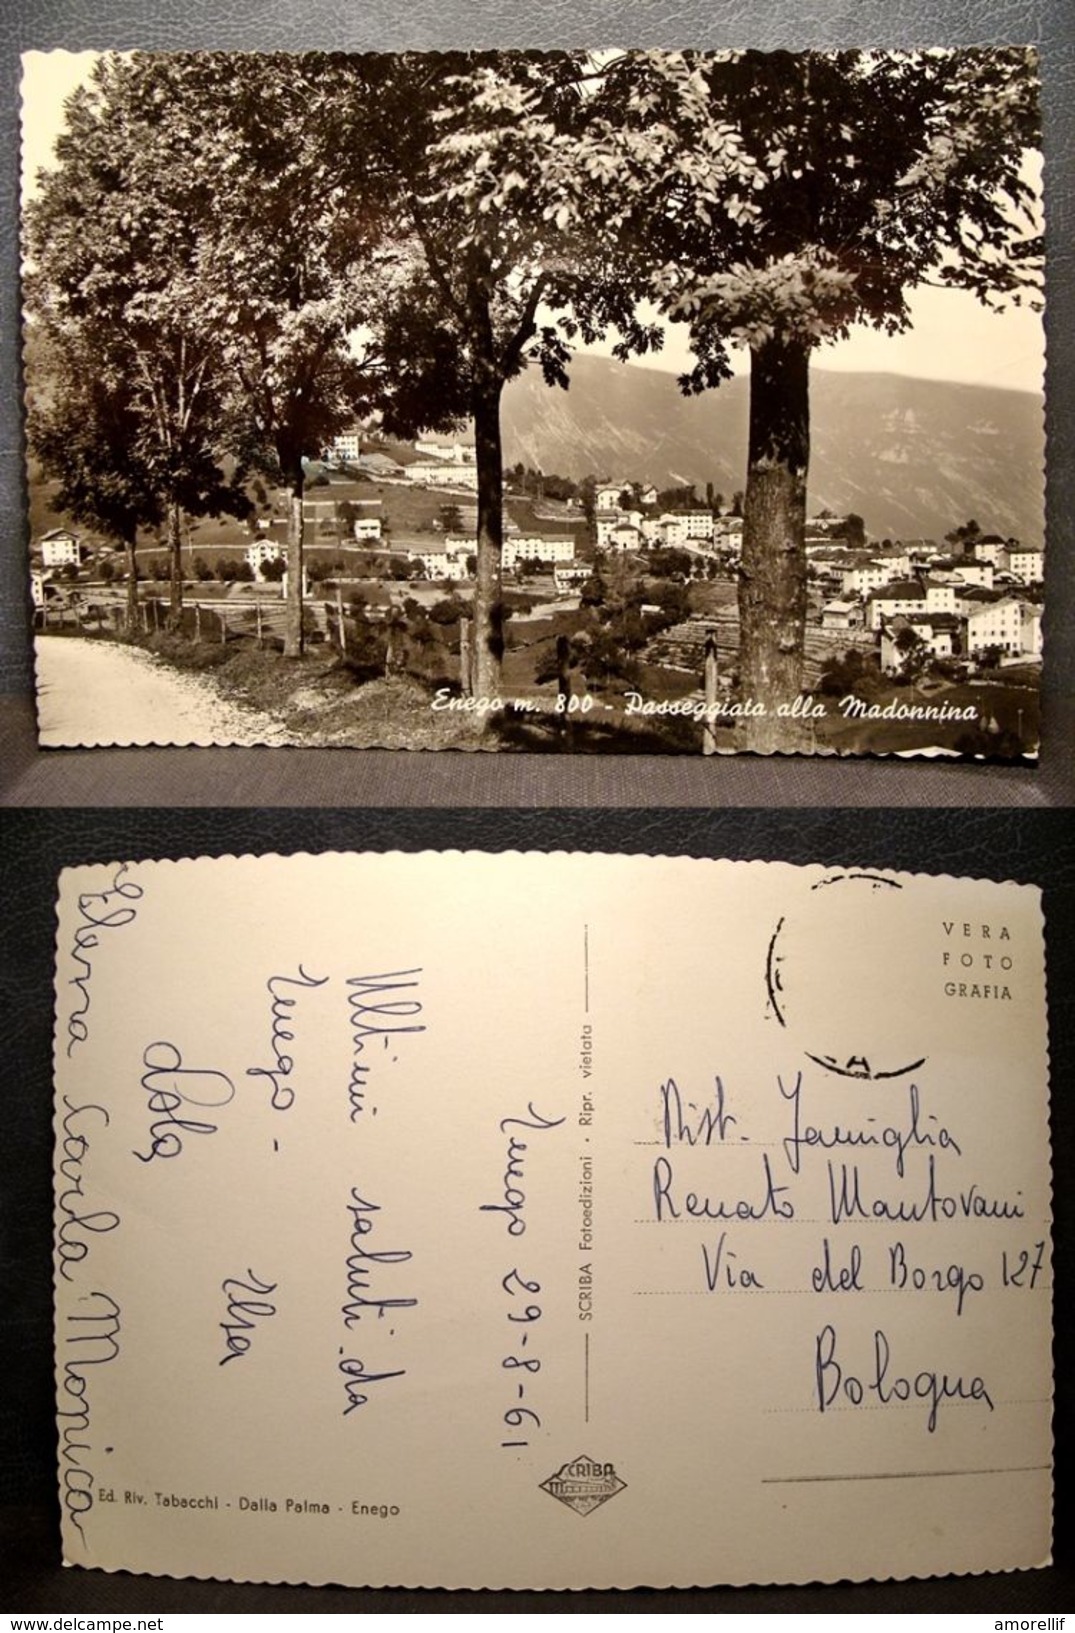 Enego m. 800 - Passeggiata alla Madonnina
VERA
FOTO
GRAFIA
Enego 29-8-61
Ultimi saluti da
Enego -
Elsa
Elena Carla Monica
Dist. Famiglia
Renato Mantovani
Via del Borgo 127
Bologna
SCRIBA Fotoedizioni • Ripr. vietata
SCRIBA
Ed. Riv. Tabacchi - Dalla Palma - Enego
amorellif